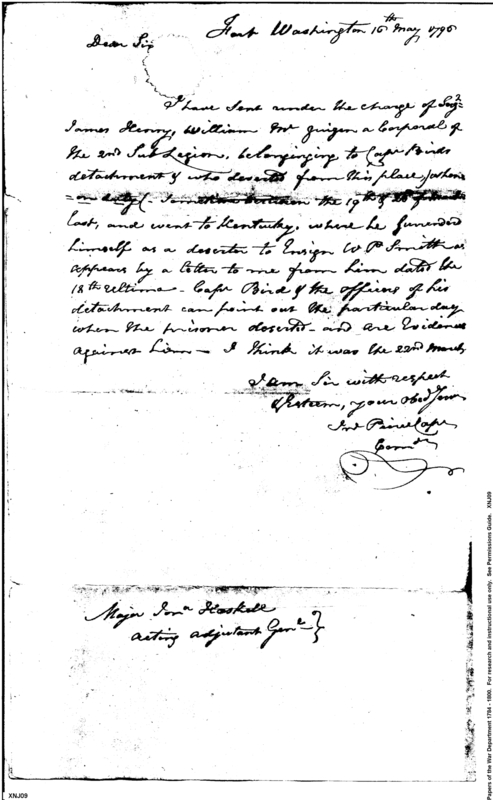 Fort Washington 16th May 1796
Dear Sir
I have Sent under the charge of Sergt
James Henry, William Mc a Corporal of
the 2nd Sub Legion, belonginging to Capt Birds
detachment & who deserted from this place, when
on duty the 19th & 
last, and went to Kentucky, where he Surrended
himself as a deserter to Ensign W P Smith as
appears by a letter to me from him dated the
18th Ultimo - Capt Bird & the officers of his
detachment can point out the particular day
when the prisoner deserted - and are Evidence
against him - I think it was the 22nd March
I am Sir with respect
& Esteem, your Obed Serv
Capt
Comdt
Major Jona Haskell
acting adjutant Genl
XNJ09
Papers of the War Department 1784 - 1800. For research and instructional use only. See Permissions Guide. XNJ09